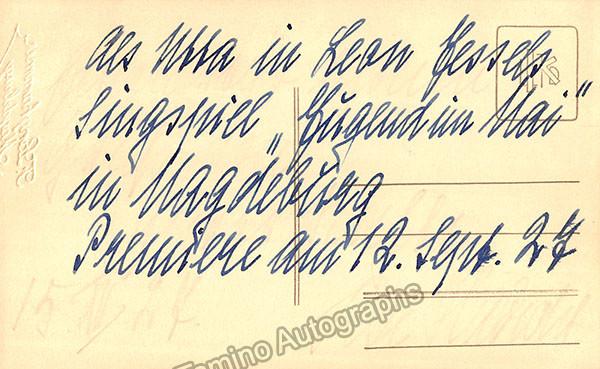 als Utta in Leon Jessels
Singspiel „Jugend im Mai"
in Magdeburg
Premiere am 12. Sept. 27
Tamino Autographs